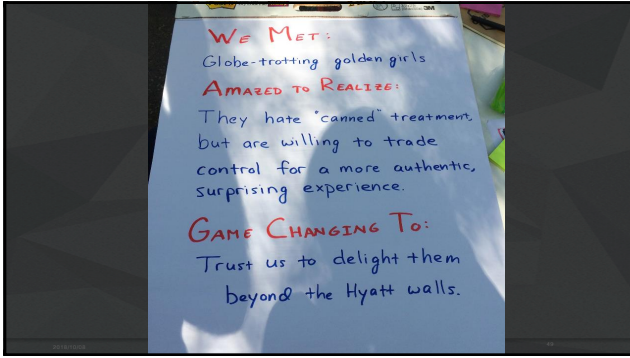 3M
WE MET:
Globe-trotting golden girls
AMAZED TO REALIZE:
They hate "canned" treatment,
but are willing to trade
control for a more authentic,
surprising experience.
GAME CHANGING TO:
Trust us to delight them
beyond the Hyatt walls.